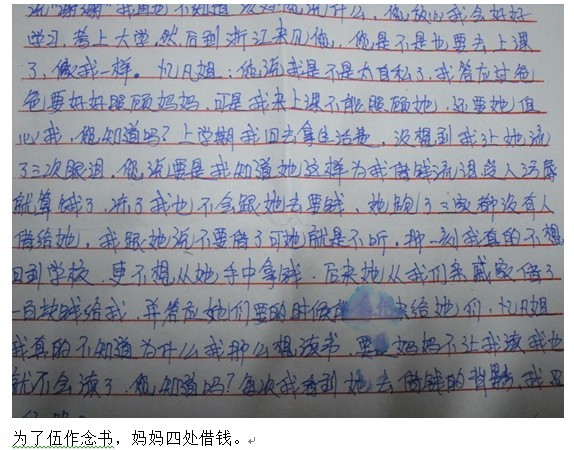 说“谢谢”我真的不知道该对您说什么，您放心我会好好
学习，考上大学，然后到浙江来见您，您是不是也要去上课
了，像我一样。忆凡姐：您说我是不是太自私了，我答应过爸
爸要好好照顾妈妈，可是我来上课不能照顾她，还要她但
心我，您知道吗？上学期我回去拿生活费，没想到我让她流
了三次眼泪，您说要是我知道她这样为我借钱流泪受人
就算饿了，冻了我也不会跟她去要钱，她跑了三家都没有人
借给她，我跟她说不要借了可她就是不听，那一刻我真的不想
回到学校，更不想从她手中拿钱，后来她从我们亲戚家借了
一百块钱给我，并答应她们要的时候 给她们，忆凡姐
我真的不知道为什么我那么想读书，要 妈妈不让我读我也
就不会读了，您知道吗？每次我看到她去借钱的背影，我
为了伍作念书，妈妈四处借钱。